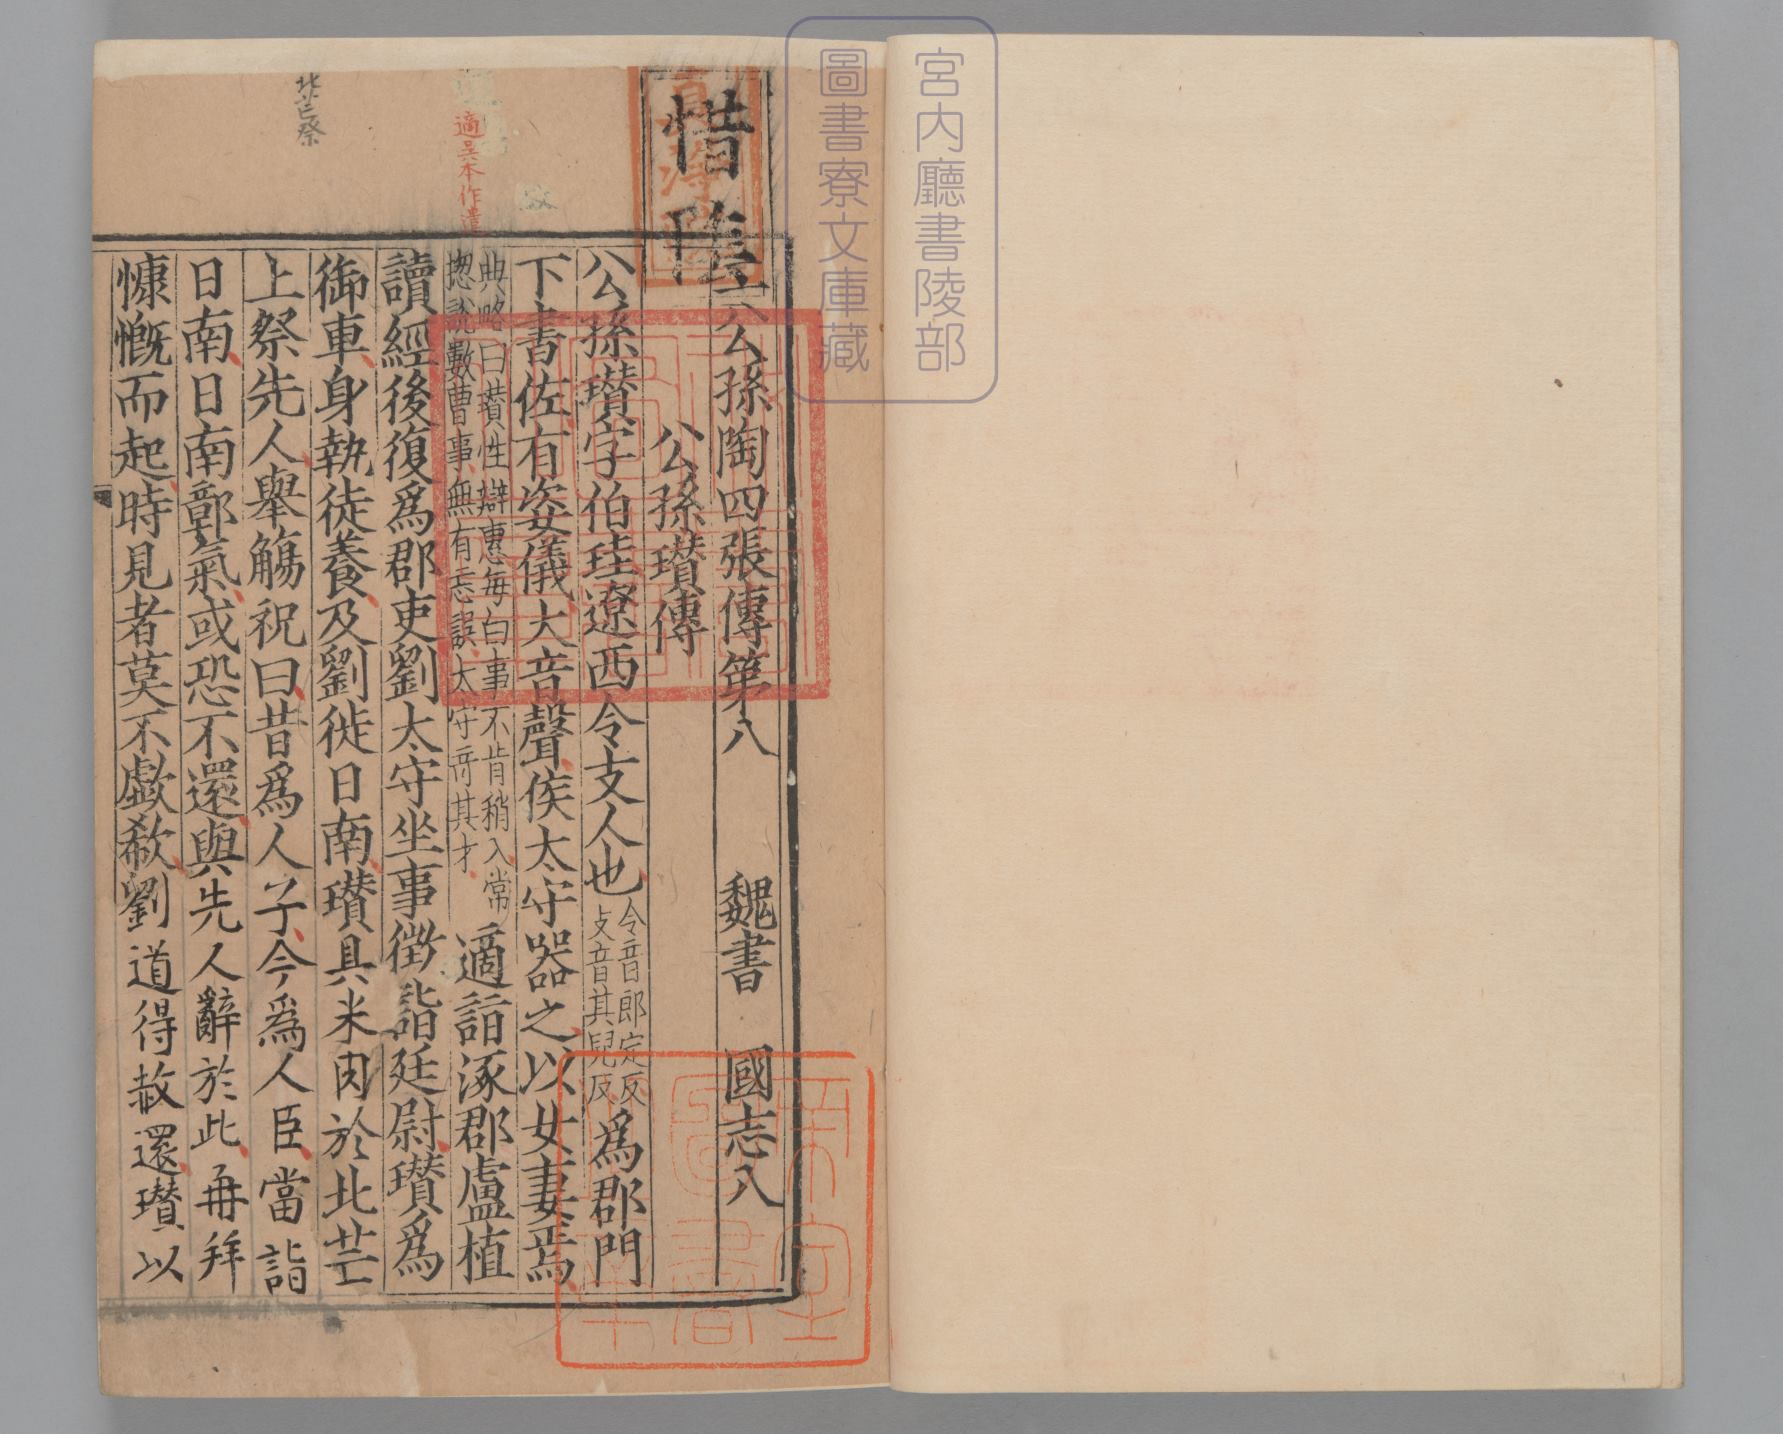 宮内廳書陵部
圖書寮文庫藏
惜陰
二公孫陶四張傳第八 魏書 國志八
公孫瓚傳
公孫瓚字伯珪遼西令支人也令音郎定反支音其兒反爲郡門
下書佐有姿儀大音聲侯太守器之以女妻焉
典略曰瓚性辯惠每白事不肯稍入常
揔說數曹事無有忘誤太守奇其才適詣涿郡盧植
讀經後復爲郡吏劉太守坐事徵詣廷尉瓚爲
御車身執徒養及劉徙日南瓚具米肉於北芒
上祭先人舉觴祝曰昔爲人子今爲人臣當詣
日南日南鄣氣或恐不還與先人辭於此再拜
慷慨而起時見者莫不歔欷劉道得赦還瓚以
適吳本作遣
北芒祭